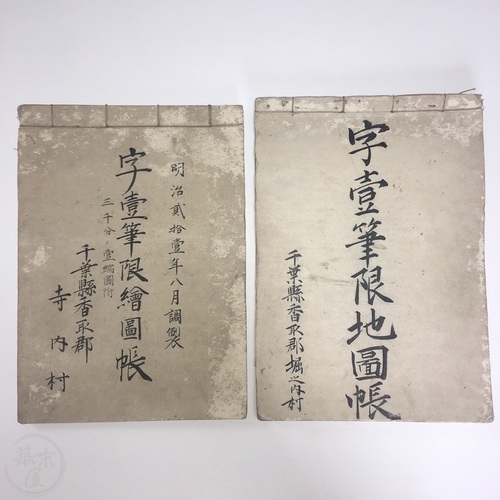 明治貳拾壹年八月調製
字壹筆限繪圖帳
三千分ノ壹縮圖附
千葉縣香取郡
寺内村
字壹筆限地圖帳
千葉縣香取郡堀之内村